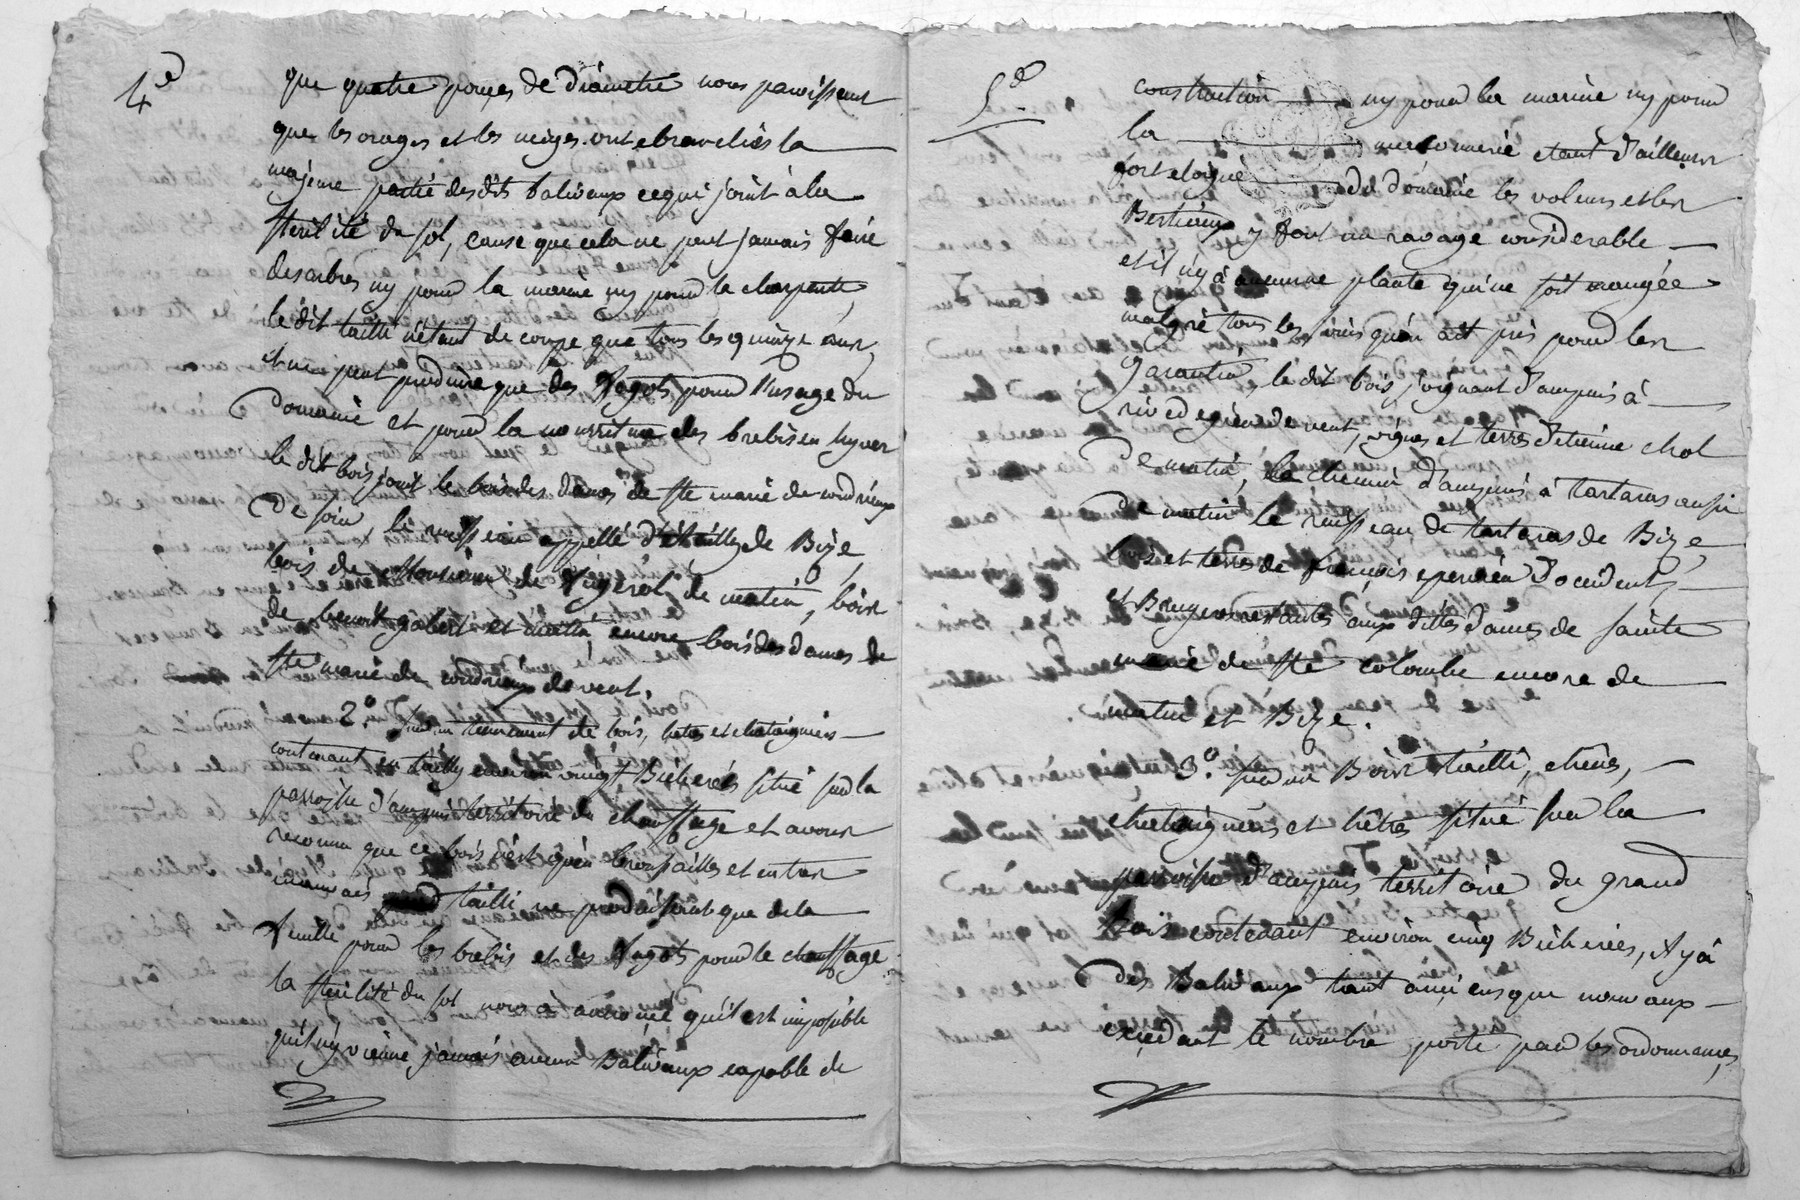 4e
que quatre pouces de diametre nous paroissent
que les orages et les neiges ont ebranlies la
majeure partie des dits baliveaux ce qui joint à la
sterilité du sol, cause que cela ne peut jamais faire
des arbres ny pour la marine ny pour la charpente,
le dit tailli n'étant de coupe que tous les quinze ans,
et ne peut produire que des fagots pour l'usage du
Domaine et pour la nourriture des brebis en hyver
le dit bois joint le bois des dames de Ste marie de condrieux
De soir, le ruisseau appellé d' de Bize,
bois de Monsieur de de matin, bois
de benoit gabert et encore bois des dames de
Ste marie de condrieux de vent.
2.° Sur un tenement de bois, hetres et chataigniers
contenant en tailly environ vingt Bicherés situé sur la
paroisse d'ampuis territoire du chauffage et avons
reconnu que ce bois n'est qu'en broussailles et un tres
mauvais tailli ne produisant que de la
feuille pour les brebis et des fagots pour le chauffage
la sterilité du sol nous à qu'il est imposible
qu'il n'y vienne jamais aucun Baliveaux capable de
5e
construction ny pour la marine ny pour
la etant d'ailleurs
fort eloigné du domaine les voleurs et les
Bestiaux y font un ravage considerable
et il n'y à aucune plante qui ne soit mangée
malgré tous les soins qu'on ait pris pour les
Garantir, le dit bois joignant d'ampuis à
rive de gier de vent, vignes et terres d'etienne chol
De matin, le chemin d'ampuis à tartaras aussi
De matin le ruisseau de tartaras de Bize,
bois et terres de françois d'occident,
et Bruyeres restantes aux dittes dames de sainte
marie de Ste colombe encore de
matin et Bize.
3.° sur un Bois tailli, chênes,
chataigniers et hêtres situé sur la
paroisse d'ampuis territoire du grand
Bois contenant environ cinq Bicherées, il y à
des Baliveaux tant anciens que nouveaux
excedant le nombre porté par les ordonnances,